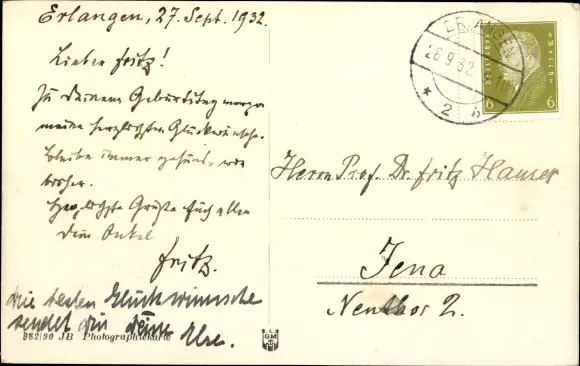 Erlangen, 27. Sept. 1932.
Lieber Fritz!
Zu Deinem Geburtstag morgen
meine herzlichsten Glückwünsche.
Bleibe immer gesund, wie
bisher.
Herzlichste Grüße Euch allen
Dein Onkel
Fritz.
die besten Glückwünsche
sendet Dir Else.
962/90 JB Photographiekarte
GM
ERLANGEN
26.9.32
* 2 b
6 6
Herrn Prof. Dr. Fritz Hauser
Jena